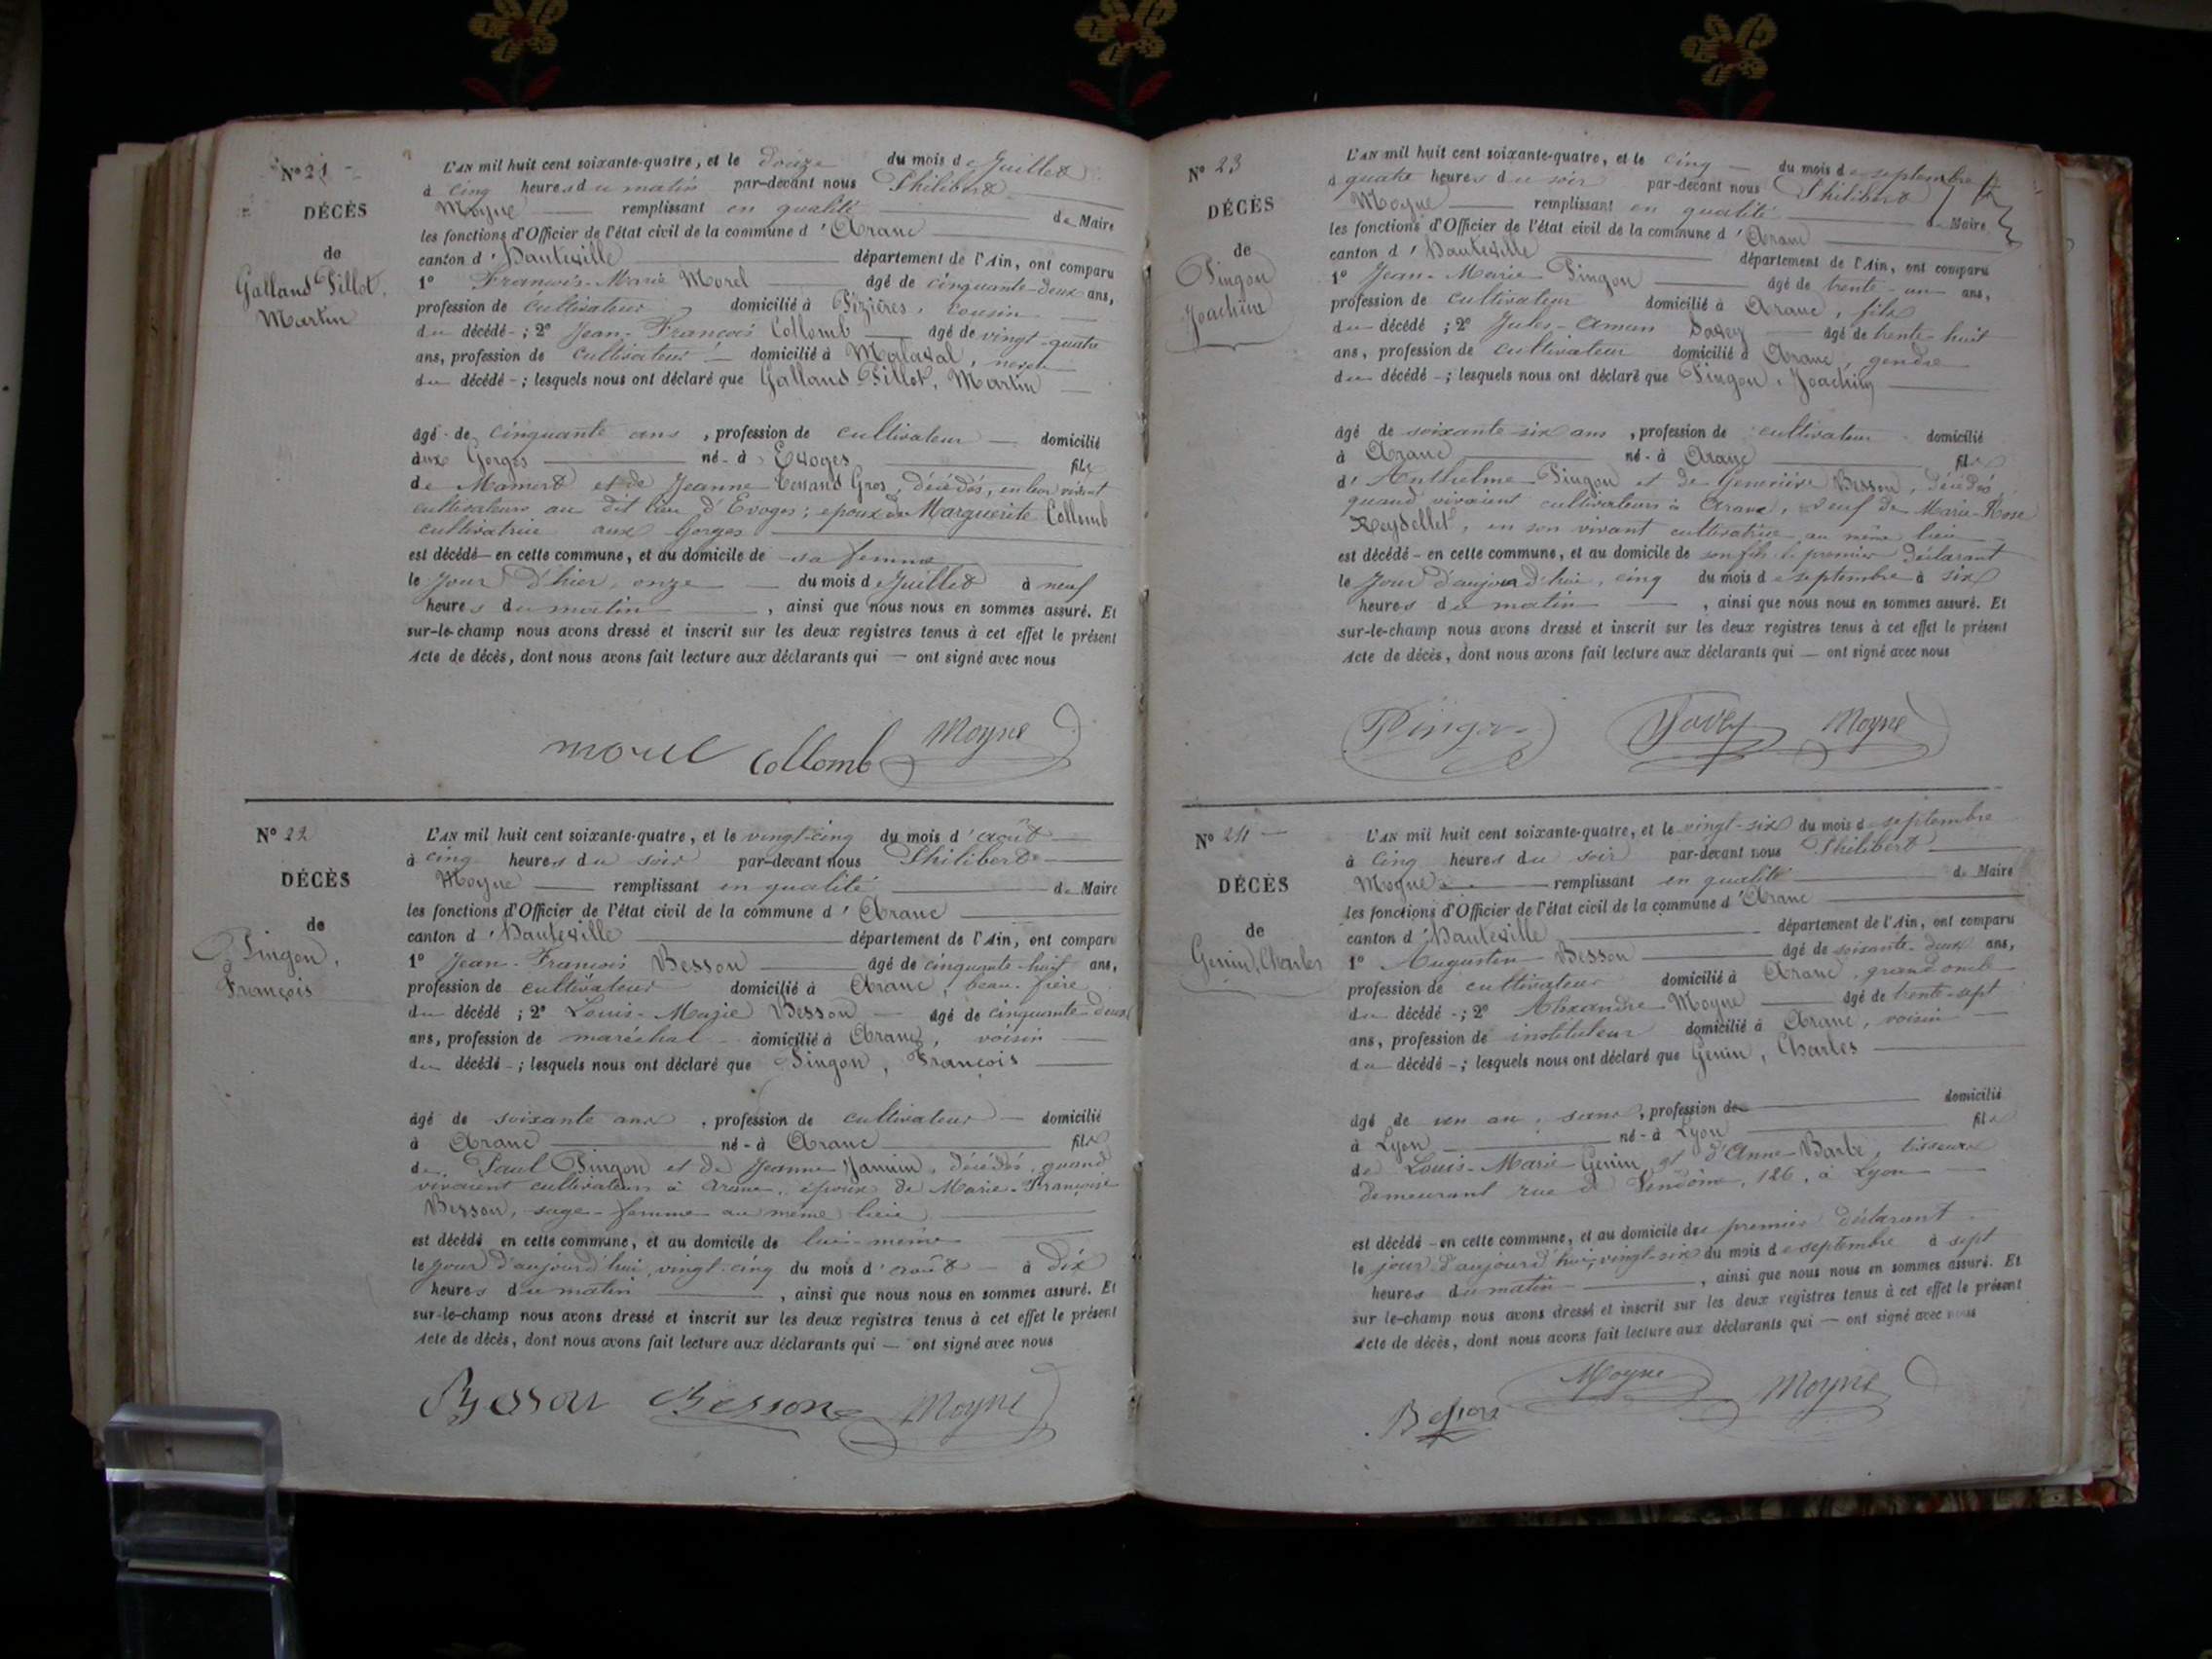 N° 21
DÉCÈS
de
Galland Pillot,
Martin
L'AN mil huit cent soixante-quatre, et le douze du mois de Juillet
à cinq heures du matin par-devant nous Philibert
Moyne remplissant en qualité de Maire
les fonctions d'Officier de l'état civil de la commune d'Aranc
canton d'Hauteville département de l'Ain, ont comparu
1° François-Marie Morel âgé de cinquante-deux ans,
profession de cultivateur domicilié à Pézières, cousin
du décédé ; 2° Jean-François Collomb âgé de vingt-quatre
ans, profession de cultivateur domicilié à Malaval, neveu
du décédé ; lesquels nous ont déclaré que Galland Pillot, Martin
âgé de cinquante ans, profession de cultivateur domicilié
aux Gorges né à Evoges fils
de Mamert et de Jeanne Gros, décédés, en leur vivant
cultivateurs au dit lieu d'Evoges; époux de Marguerite Collomb
cultivatrice aux Gorges
est décédé en cette commune, et au domicile de sa femme
le jour d'hier, onze du mois de Juillet à neuf
heures du matin, ainsi que nous nous en sommes assuré. Et
sur-le-champ nous avons dressé et inscrit sur les deux registres tenus à cet effet le présent
Acte de décès, dont nous avons fait lecture aux déclarants qui — ont signé avec nous
morel Collomb Moyne
N° 22
DÉCÈS
de
Pingon,
François
L'AN mil huit cent soixante-quatre, et le vingt-cinq du mois d'août
à cinq heures du soir par-devant nous Philibert
Moyne remplissant en qualité de Maire
les fonctions d'Officier de l'état civil de la commune d'Aranc
canton d'Hauteville département de l'Ain, ont comparu
1° Jean-François Besson âgé de cinquante-huit ans,
profession de cultivateur domicilié à Aranc, beau-frère
du décédé ; 2° Louis-Marie Besson âgé de cinquante-deux
ans, profession de maréchal domicilié à Aranc, voisin
du décédé ; lesquels nous ont déclaré que Pingon, François
âgé de soixante ans, profession de cultivateur domicilié
à Aranc né à Aranc fils
de Paul Pingon et de Jeanne Jannin, décédés, quand
vivaient cultivateurs à Aranc, époux de Marie-Françoise
Besson, sage-femme au même lieu
est décédé en cette commune, et au domicile de lui-même
le jour d'aujourd'hui, vingt-cinq du mois d'août à dix
heures du matin, ainsi que nous nous en sommes assuré. Et
sur-le-champ nous avons dressé et inscrit sur les deux registres tenus à cet effet le présent
Acte de décès, dont nous avons fait lecture aux déclarants qui — ont signé avec nous
Besson Besson Moyne
N° 23
DÉCÈS
de
Pingon
Joachim
L'AN mil huit cent soixante-quatre, et le cinq du mois de septembre
à quatre heures du soir par-devant nous Philibert
Moyne remplissant en qualité de Maire
les fonctions d'Officier de l'état civil de la commune d'Aranc
canton d'Hauteville département de l'Ain, ont comparu
1° Jean-Marie Pingon âgé de trente-un ans,
profession de cultivateur domicilié à Aranc, fils
du décédé ; 2° Jules-Aman Savey âgé de trente-huit
ans, profession de cultivateur domicilié à Aranc, gendre
du décédé ; lesquels nous ont déclaré que Pingon, Joachim
âgé de soixante-six ans, profession de cultivateur domicilié
à Aranc né à Aranc fils
d'Anthelme Pingon et de Geneviève Besson, décédés
quand vivaient cultivateurs à Aranc, veuf de Marie-Rose
Reydellet, en son vivant cultivatrice au même lieu
est décédé en cette commune, et au domicile de son fils le premier déclarant
le jour d'aujourd'hui, cinq du mois de septembre à six
heures du matin, ainsi que nous nous en sommes assuré. Et
sur-le-champ nous avons dressé et inscrit sur les deux registres tenus à cet effet le présent
Acte de décès, dont nous avons fait lecture aux déclarants qui — ont signé avec nous
Pingon Savey Moyne
N° 24
DÉCÈS
de
Genin, Charles
L'AN mil huit cent soixante-quatre, et le vingt-six du mois de septembre
à cinq heures du soir par-devant nous Philibert
Moyne remplissant en qualité de Maire
les fonctions d'Officier de l'état civil de la commune d'Aranc
canton d'Hauteville département de l'Ain, ont comparu
1° Augustin Besson âgé de soixante-deux ans,
profession de cultivateur domicilié à Aranc, grand oncle
du décédé ; 2° Alexandre Moyne âgé de trente-sept
ans, profession de instituteur domicilié à Aranc, voisin
du décédé ; lesquels nous ont déclaré que Genin, Charles
âgé de un an, sans, profession de domicilié
à Lyon né à Lyon fils
de Louis-Marie Genin et d'Anne Barbe, tisseurs
demeurant rue de Vendôme, 126, à Lyon
est décédé en cette commune, et au domicile du premier déclarant
le jour d'aujourd'hui, vingt-six du mois de septembre à sept
heures du matin, ainsi que nous nous en sommes assuré. Et
sur le-champ nous avons dressé et inscrit sur les deux registres tenus à cet effet le présent
Acte de décès, dont nous avons fait lecture aux déclarants qui — ont signé avec nous
Besson Moyne Moyne